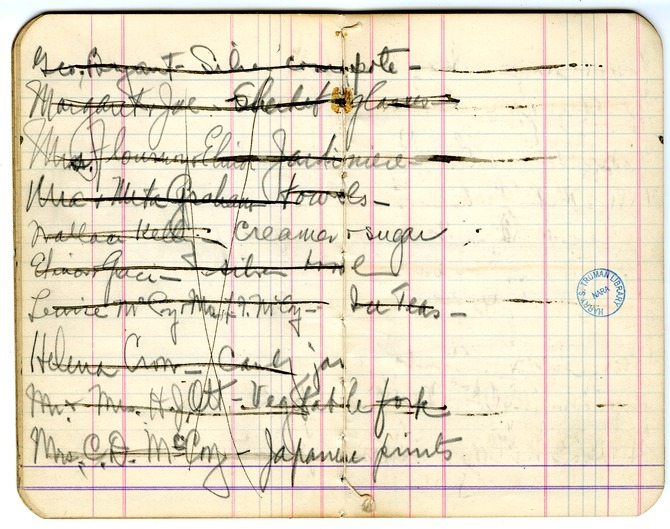 Geo. Bryant - Silver compote -
Margaret & Joe - Sherbet glasses
Mrs. & Elvia Jardiniere -
Mrs & Meta Graham towels -
Wallace Kelly - Creamer & sugar
Elinor - silver bowl
Louise McCoy Mrs. McCoy - Ice Teas -
Helena Crow - Candy jar
Mr & Mrs. H.J. Ott - Vegetable fork
Mrs. C.D. McCoy - Japanese prints
HARRY S. TRUMAN LIBRARY
NARA